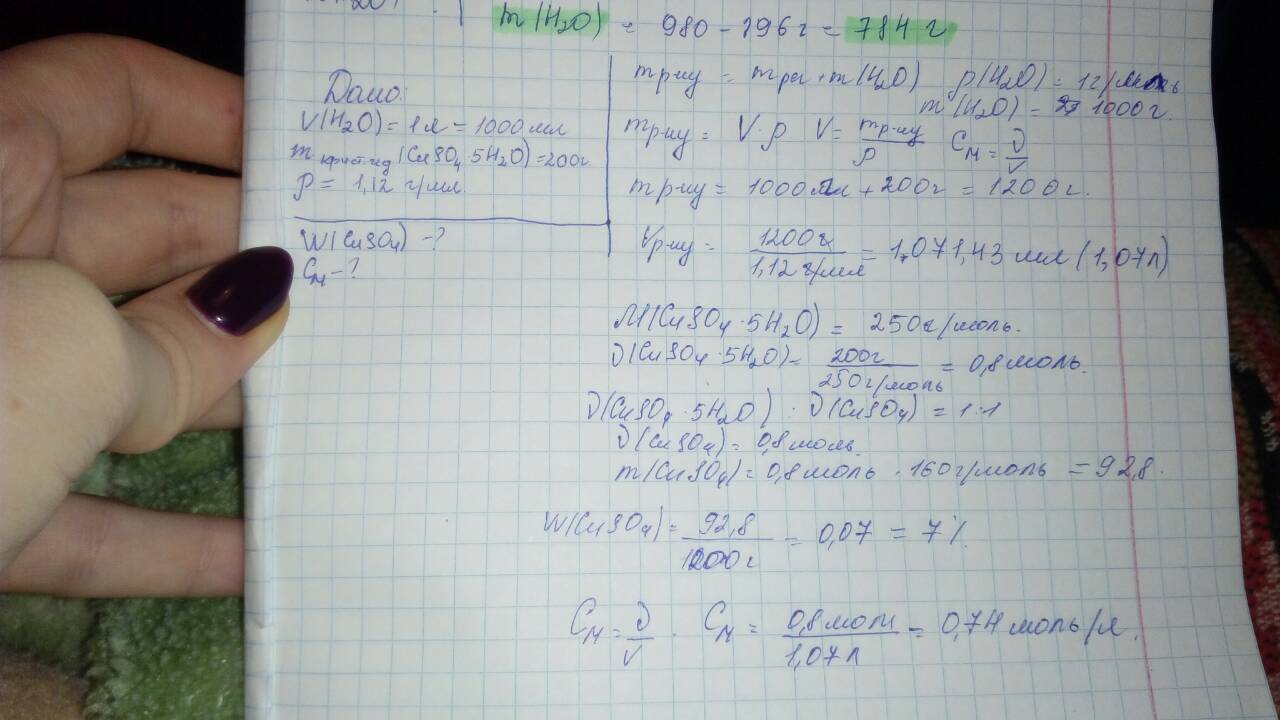 m(H₂O) = 980 - 196г = 784 г
Дано:
V(H₂O) = 1л = 1000 мл
m крист.гид (CuSO₄ 5H₂O) = 200г
ρ = 1,12 г/мл
W(CuSO₄) - ?
Cм - ?
mр-ну = mрег + m(H₂O) ρ(H₂O) = 1г/
m(H₂O) = 1000г
mр-ну = V·ρ V = mр-ну/ρ Cм = ν/V
mр-ну = 1000 + 200г = 1200г.
Vр-ну = 1200г/1,12 г/мл = 1,071,43 мл (1,07л)
M(CuSO₄·5H₂O) = 250г/моль.
ν(CuSO₄·5H₂O) = 200г/250г/моль = 0,8 моль.
ν(CuSO₄·5H₂O) : ν(CuSO₄) = 1:1
ν(CuSO₄) = 0,8 моль.
m(CuSO₄) = 0,8 моль · 160г/моль = 92,8.
W(CuSO₄) = 92,8/1200г = 0,07 = 7%.
Cм = ν/V . Cм = 0,8 моль/1,07л = 0,74 моль/л.